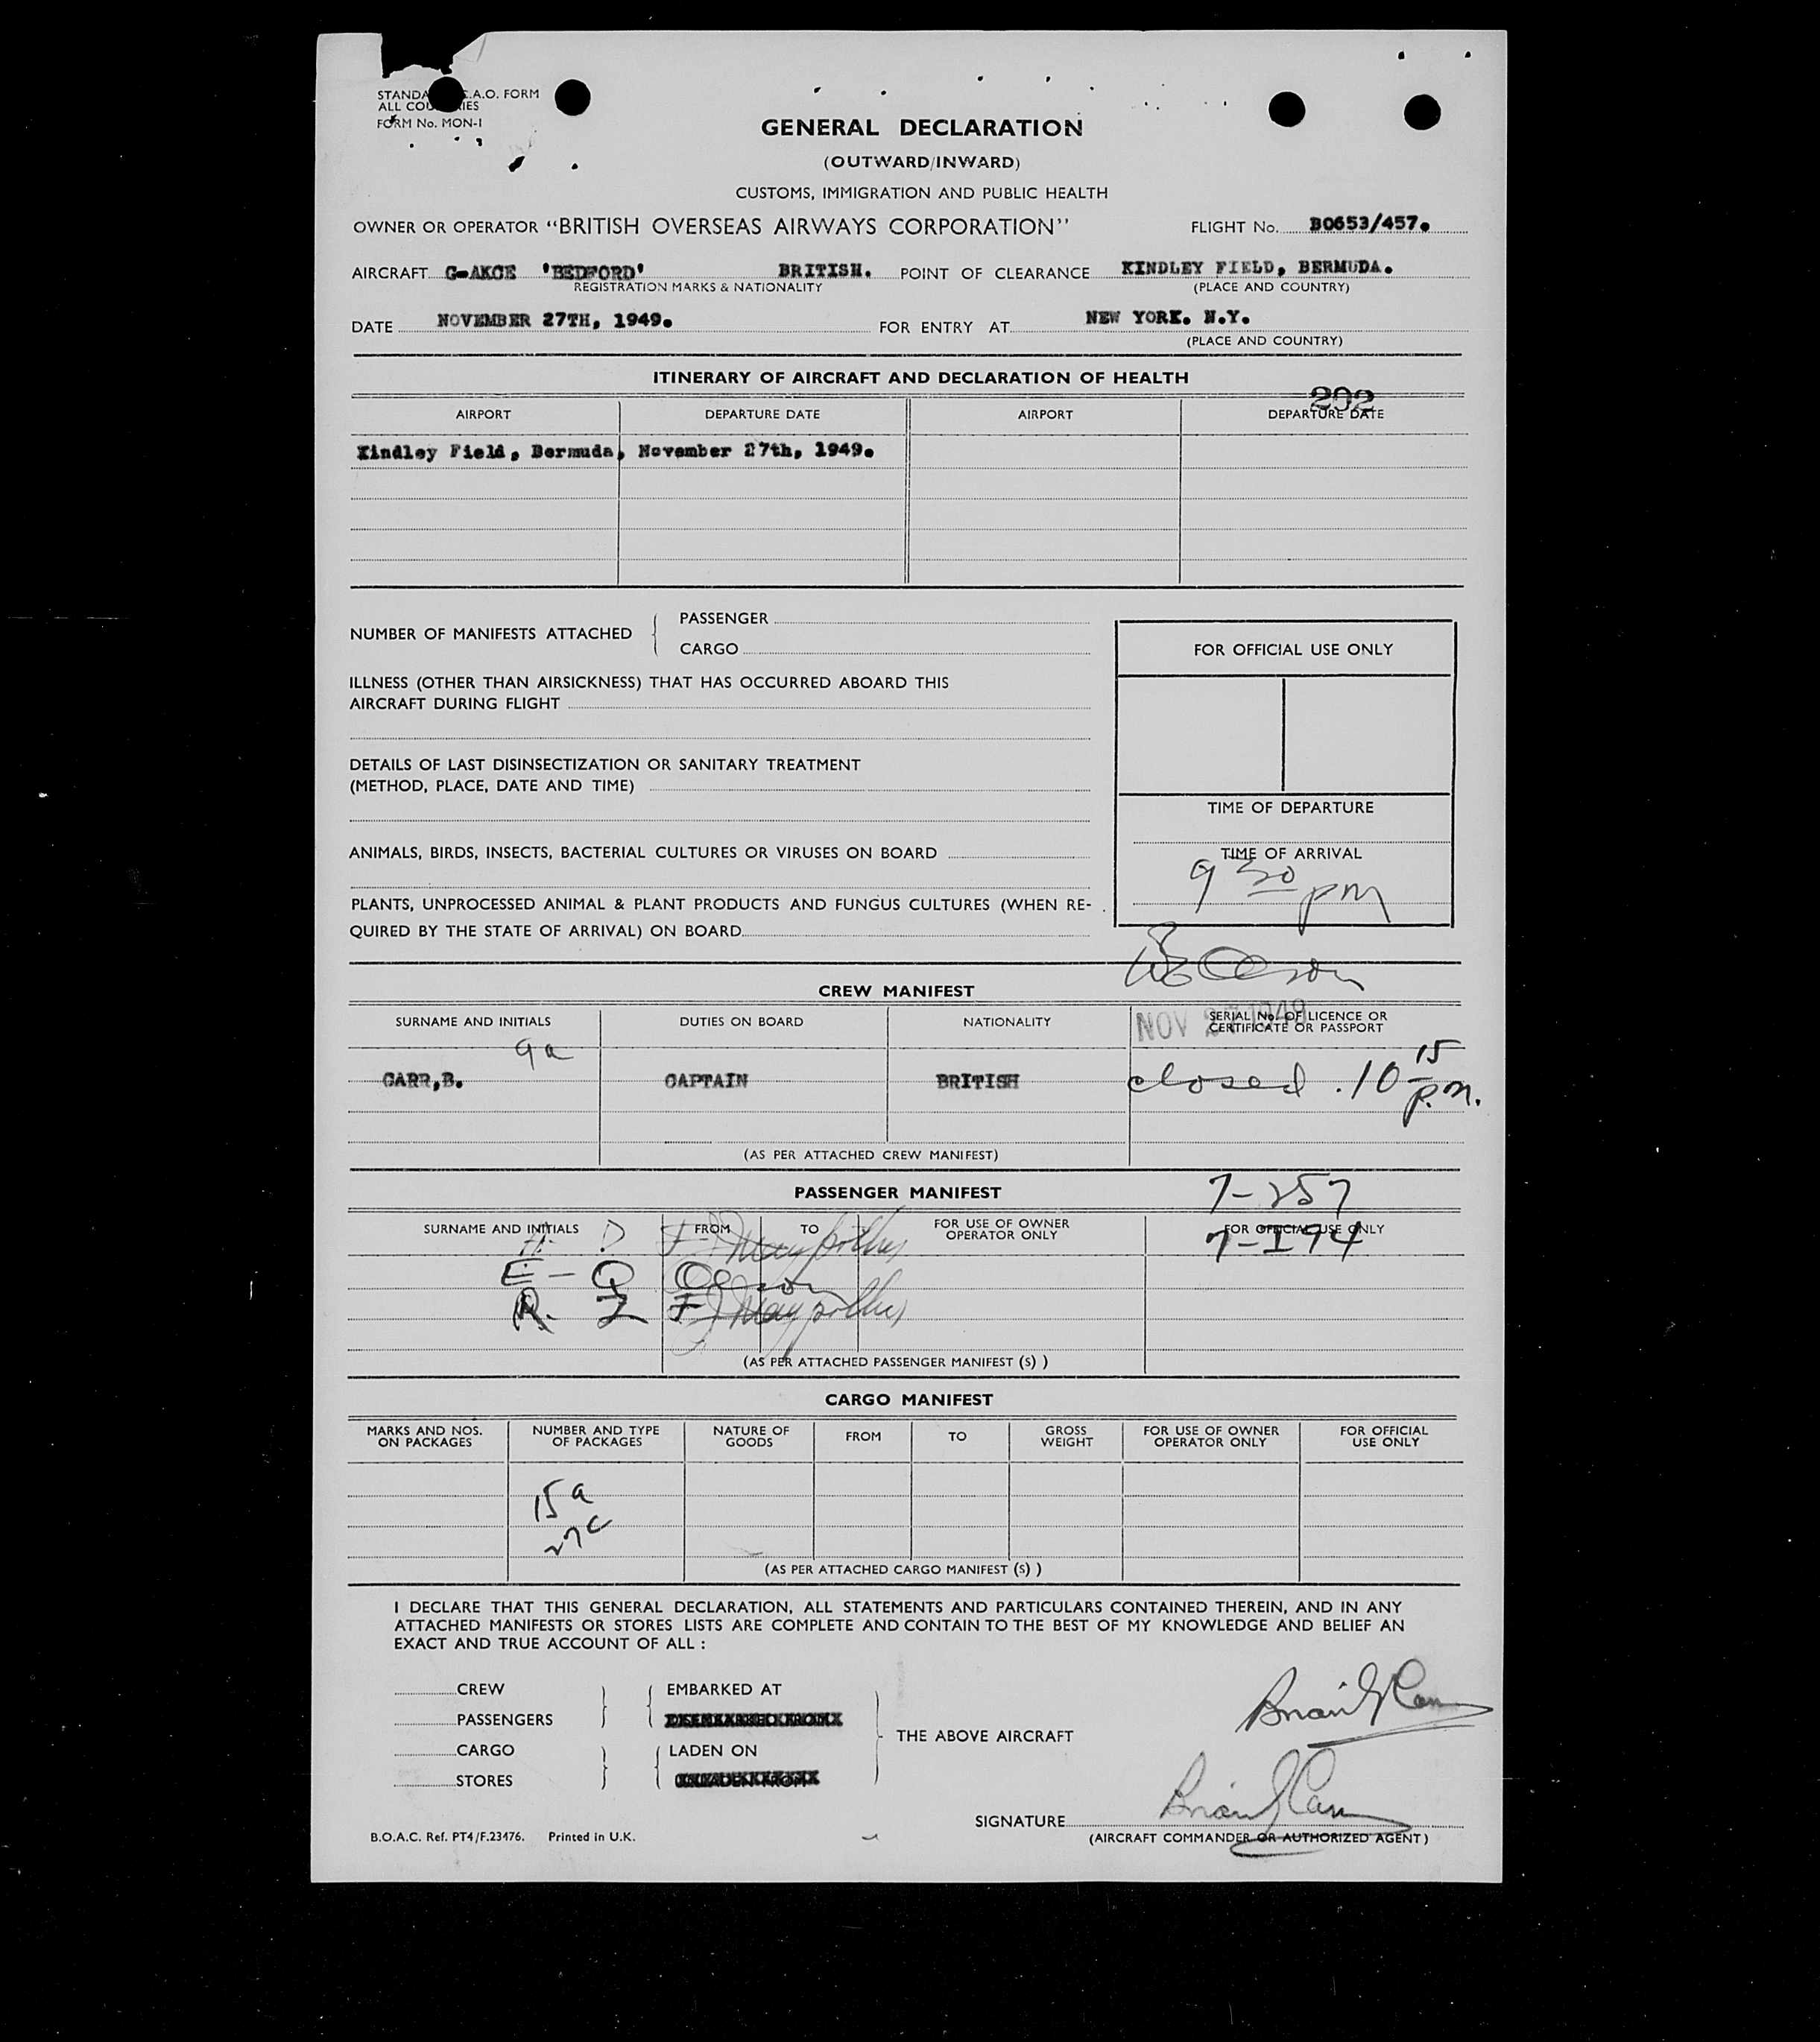 STANDA .A.O. FORM
ALL COU IES
FORM No. MON-I
GENERAL DECLARATION
(OUTWARD/INWARD)
CUSTOMS, IMMIGRATION AND PUBLIC HEALTH
OWNER OR OPERATOR "BRITISH OVERSEAS AIRWAYS CORPORATION" FLIGHT No. BO653/457.
AIRCRAFT G-AKCE 'BEDFORD' BRITISH. POINT OF CLEARANCE KINDLEY FIELD, BERMUDA.
REGISTRATION MARKS & NATIONALITY (PLACE AND COUNTRY)
DATE NOVEMBER 27TH, 1949. FOR ENTRY AT NEW YORK. N.Y.
(PLACE AND COUNTRY)
ITINERARY OF AIRCRAFT AND DECLARATION OF HEALTH
202
AIRPORT DEPARTURE DATE AIRPORT DEPARTURE DATE
Kindley Field, Bermuda, November 27th, 1949.
NUMBER OF MANIFESTS ATTACHED PASSENGER
CARGO
FOR OFFICIAL USE ONLY
ILLNESS (OTHER THAN AIRSICKNESS) THAT HAS OCCURRED ABOARD THIS
AIRCRAFT DURING FLIGHT
DETAILS OF LAST DISINSECTIZATION OR SANITARY TREATMENT
(METHOD, PLACE, DATE AND TIME)
TIME OF DEPARTURE
ANIMALS, BIRDS, INSECTS, BACTERIAL CULTURES OR VIRUSES ON BOARD
TIME OF ARRIVAL
9 30 pm
PLANTS, UNPROCESSED ANIMAL & PLANT PRODUCTS AND FUNGUS CULTURES (WHEN RE-
QUIRED BY THE STATE OF ARRIVAL) ON BOARD
CREW MANIFEST
SURNAME AND INITIALS DUTIES ON BOARD NATIONALITY SERIAL No. OF LICENCE OR
CERTIFICATE OR PASSPORT
NOV 1949
9a
CARR,B. CAPTAIN BRITISH closed . 10 15 p.m.
(AS PER ATTACHED CREW MANIFEST)
PASSENGER MANIFEST
7-257
SURNAME AND INITIALS FROM TO FOR USE OF OWNER
OPERATOR ONLY FOR OFFICIAL USE ONLY
7-194
E - Q Oleson
(AS PER ATTACHED PASSENGER MANIFEST (S) )
CARGO MANIFEST
MARKS AND NOS.
ON PACKAGES NUMBER AND TYPE
OF PACKAGES NATURE OF
GOODS FROM TO GROSS
WEIGHT FOR USE OF OWNER
OPERATOR ONLY FOR OFFICIAL
USE ONLY
15a
27c
(AS PER ATTACHED CARGO MANIFEST (S) )
I DECLARE THAT THIS GENERAL DECLARATION, ALL STATEMENTS AND PARTICULARS CONTAINED THEREIN, AND IN ANY
ATTACHED MANIFESTS OR STORES LISTS ARE COMPLETE AND CONTAIN TO THE BEST OF MY KNOWLEDGE AND BELIEF AN
EXACT AND TRUE ACCOUNT OF ALL :
CREW EMBARKED AT
PASSENGERS
THE ABOVE AIRCRAFT
CARGO LADEN ON
STORES
Brian G Carr
Brian G Carr
SIGNATURE
(AIRCRAFT COMMANDER OR AUTHORIZED AGENT)
B.O.A.C. Ref. PT4/F.23476. Printed in U.K.